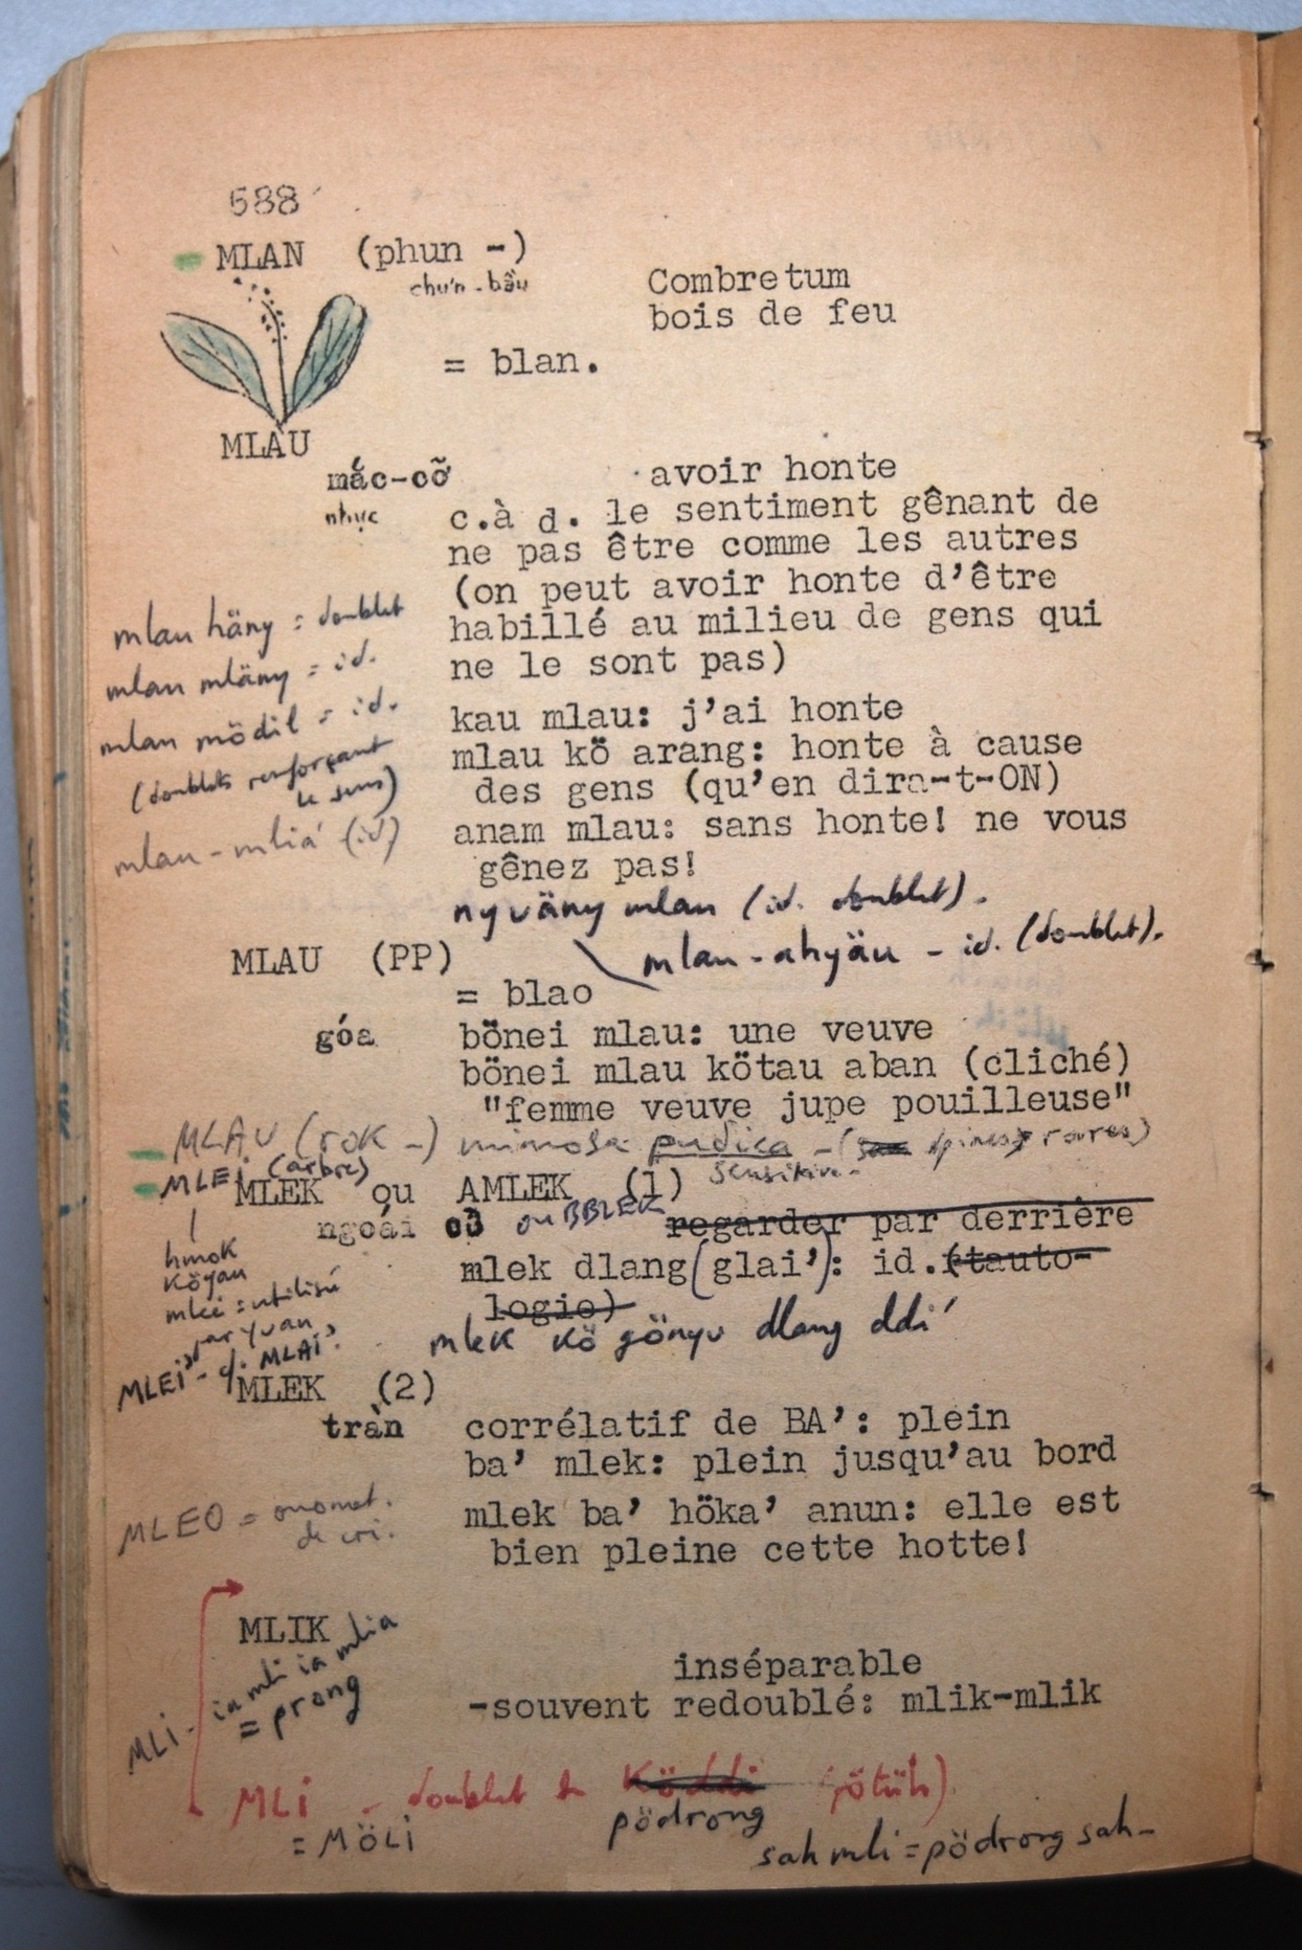 688
MLAN (phun -)
chưn-bầu
Combretum
bois de feu
= blan.
MLAU
mắc-cỡ
avoir honte
nhục
c.à d. le sentiment gênant de
ne pas être comme les autres
(on peut avoir honte d'être
habillé au milieu de gens qui
ne le sont pas)
mlau häny = doublet
mlau mläny = id.
mlau mödil = id.
(doublets renforçant
le sens)
mlau-mliá (id)
kau mlau: j'ai honte
mlau kö arang: honte à cause
des gens (qu'en dira-t-ON)
anam mlau: sans honte! ne vous
gênez pas!
nyväny mlau (id. doublet).
mlau-ahyäu - id. (doublet).
MLAU (PP)
= blao
góa
bönei mlau: une veuve
bönei mlau kötau aban (cliché)
"femme veuve jupe pouilleuse"
MLAU (rok -) mimosa pudica - ( épines roses)
sensitive.
MLEI (arbre)
hmok
köyau
mlei = utilisé
par yuan
MLEI - cf. MLAI
MLEK ou AMLEK (1)
ou BBLEK
ngoái cô regarder par derrière
mlek dlang (glai'): id. (tauto-
logie)
mlek kö gönyu dlang ddi'
MLEK (2)
tràn
corrélatif de BA': plein
ba' mlek: plein jusqu'au bord
mlek ba' höka' anun: elle est
bien pleine cette hotte!
MLEO = onomat.
de cri.
MLIK
inséparable
-souvent redoublé: mlik-mlik
MLI - ia mli ia mlia
= prong
MLI - doublet de Köddi (rötüh)
pödrong
= MÖLI
sah mli = pödrong sah-